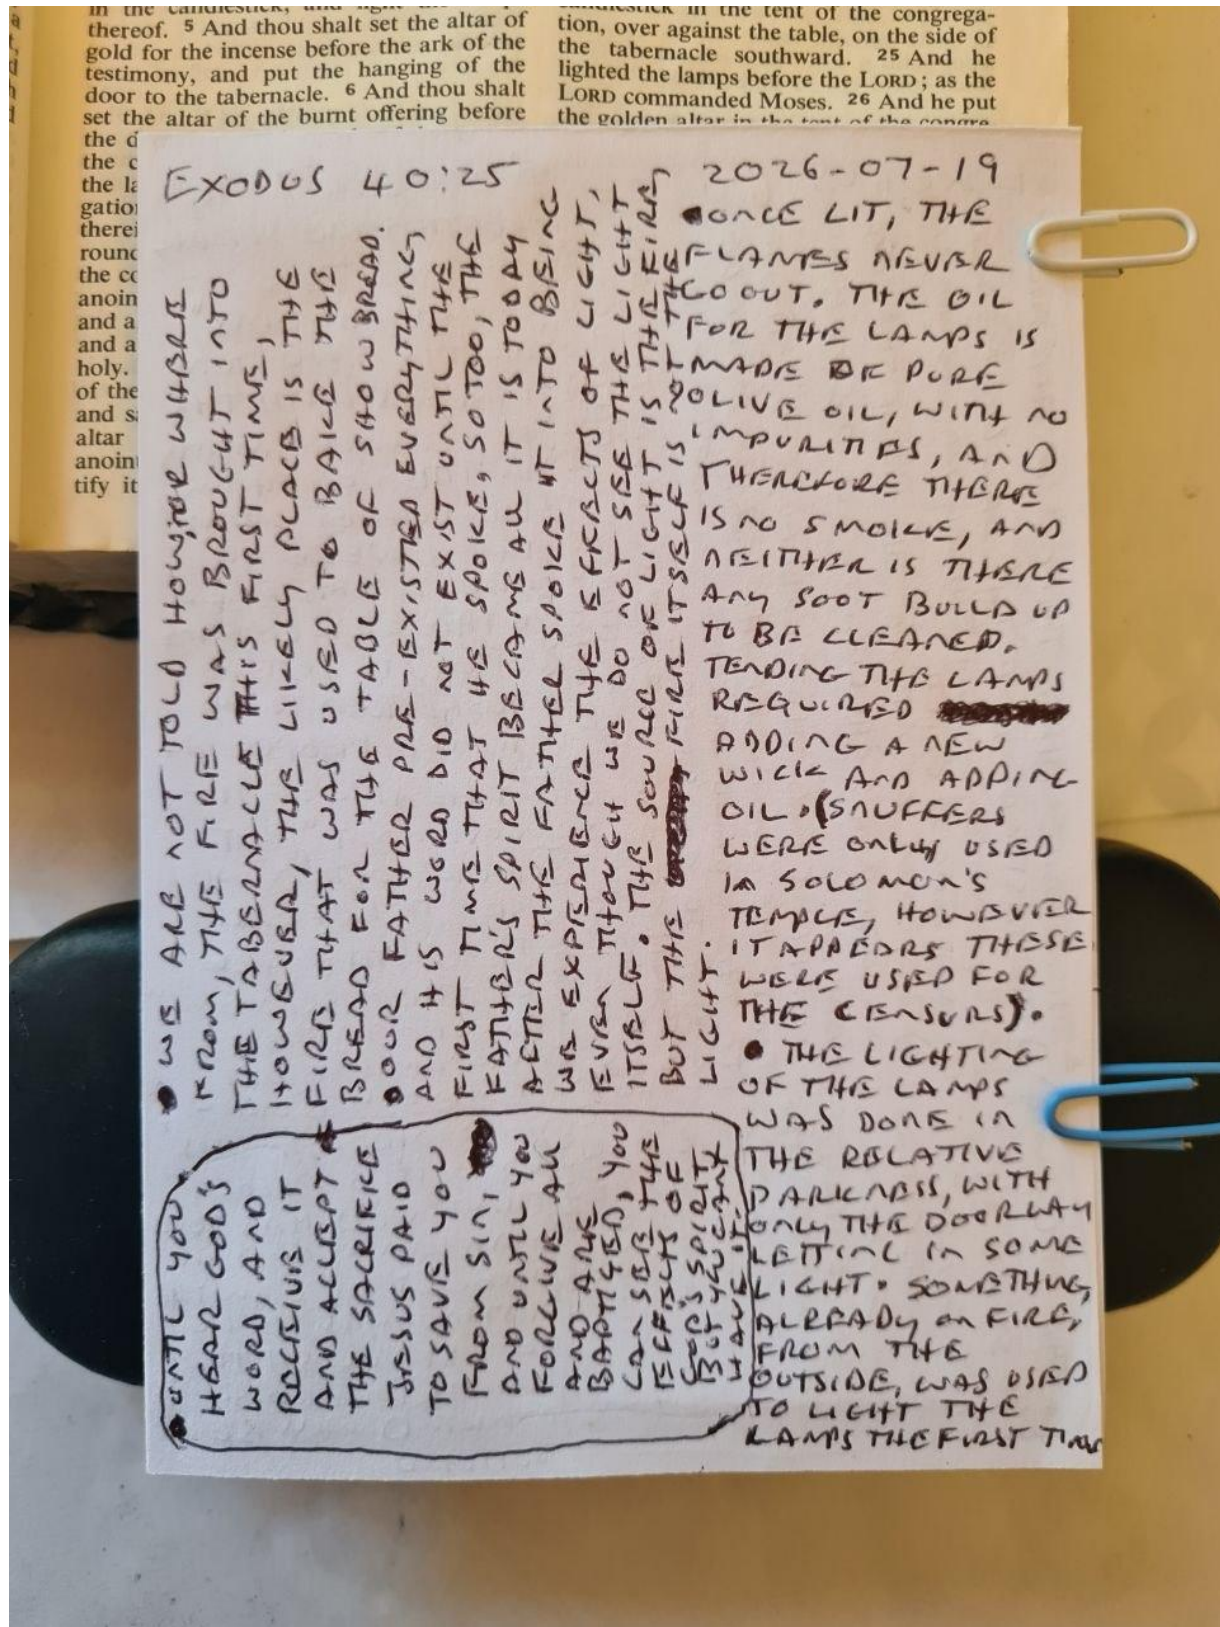 thereof. 5 And thou shalt set the altar of
gold for the incense before the ark of the
testimony, and put the hanging of the
door to the tabernacle. 6 And thou shalt
set the altar of the burnt offering before
the d
the c
the la
gation
therei
round
the co
anoin
and a
and a
holy.
of the
and sa
altar
anoint
tify it
candlestick in the tent of the congrega-
tion, over against the table, on the side of
the tabernacle southward. 25 And he
lighted the lamps before the LORD; as the
LORD commanded Moses. 26 And he put
the golden altar in the tent of the congre-
EXODUS 40:25
2026-07-19
• ONCE LIT, THE
FLAMES NEVER
GO OUT. THE OIL
FOR THE LAMPS IS
MADE OF PURE
OLIVE OIL, WITH NO
IMPURITIES, AND
THEREFORE THERE
IS NO SMOKE, AND
NEITHER IS THERE
ANY SOOT BUILD UP
TO BE CLEANED.
TENDING THE LAMPS
REQUIRED
ADDING A NEW
WICK AND ADDING
OIL. (SNUFFERS
WERE ONLY USED
IN SOLOMON'S
TEMPLE, HOWEVER
IT APPEARS THESE
WERE USED FOR
THE CENSURS).
• THE LIGHTING
OF THE LAMPS
WAS DONE IN
THE RELATIVE
DARKNESS, WITH
ONLY THE DOORWAY
LETTING IN SOME
LIGHT. SOMETHING,
ALREADY ON FIRE,
FROM THE
OUTSIDE, WAS USED
TO LIGHT THE
LAMPS THE FIRST TIME
• WE ARE NOT TOLD HOW, OR WHERE
FROM, THE FIRE WAS BROUGHT INTO
THE TABERNACLE THIS FIRST TIME,
HOWEVER, THE LIKELY PLACE IS THE
FIRE THAT WAS USED TO BAKE THE
BREAD FOR THE TABLE OF SHOWBREAD.
• OUR FATHER PRE-EXISTED EVERYTHING,
AND HIS WORD DID NOT EXIST UNTIL THE
FIRST TIME THAT HE SPOKE, SO TOO, THE
FATHER'S SPIRIT BECAME ALL IT IS TODAY
AFTER THE FATHER SPOKE IT INTO BEING
WE EXPERIENCE THE EFFECTS OF LIGHT,
EVEN THOUGH WE DO NOT SEE THE LIGHT
ITSELF. THE SOURCE OF LIGHT IS THE FIRE,
BUT THE FIRE ITSELF IS NOT THE
LIGHT.
• UNTIL YOU
HEAR GOD'S
WORD, AND
RECEIVE IT
AND ACCEPT
THE SACRIFICE
JESUS PAID
TO SAVE YOU
FROM SIN,
AND UNTIL YOU
FORGIVE ALL
AND ARE
BAPTIZED, YOU
CAN SEE THE
EFFECTS OF
GOD'S SPIRIT
BUT YOU CAN'T
HAVE IT.